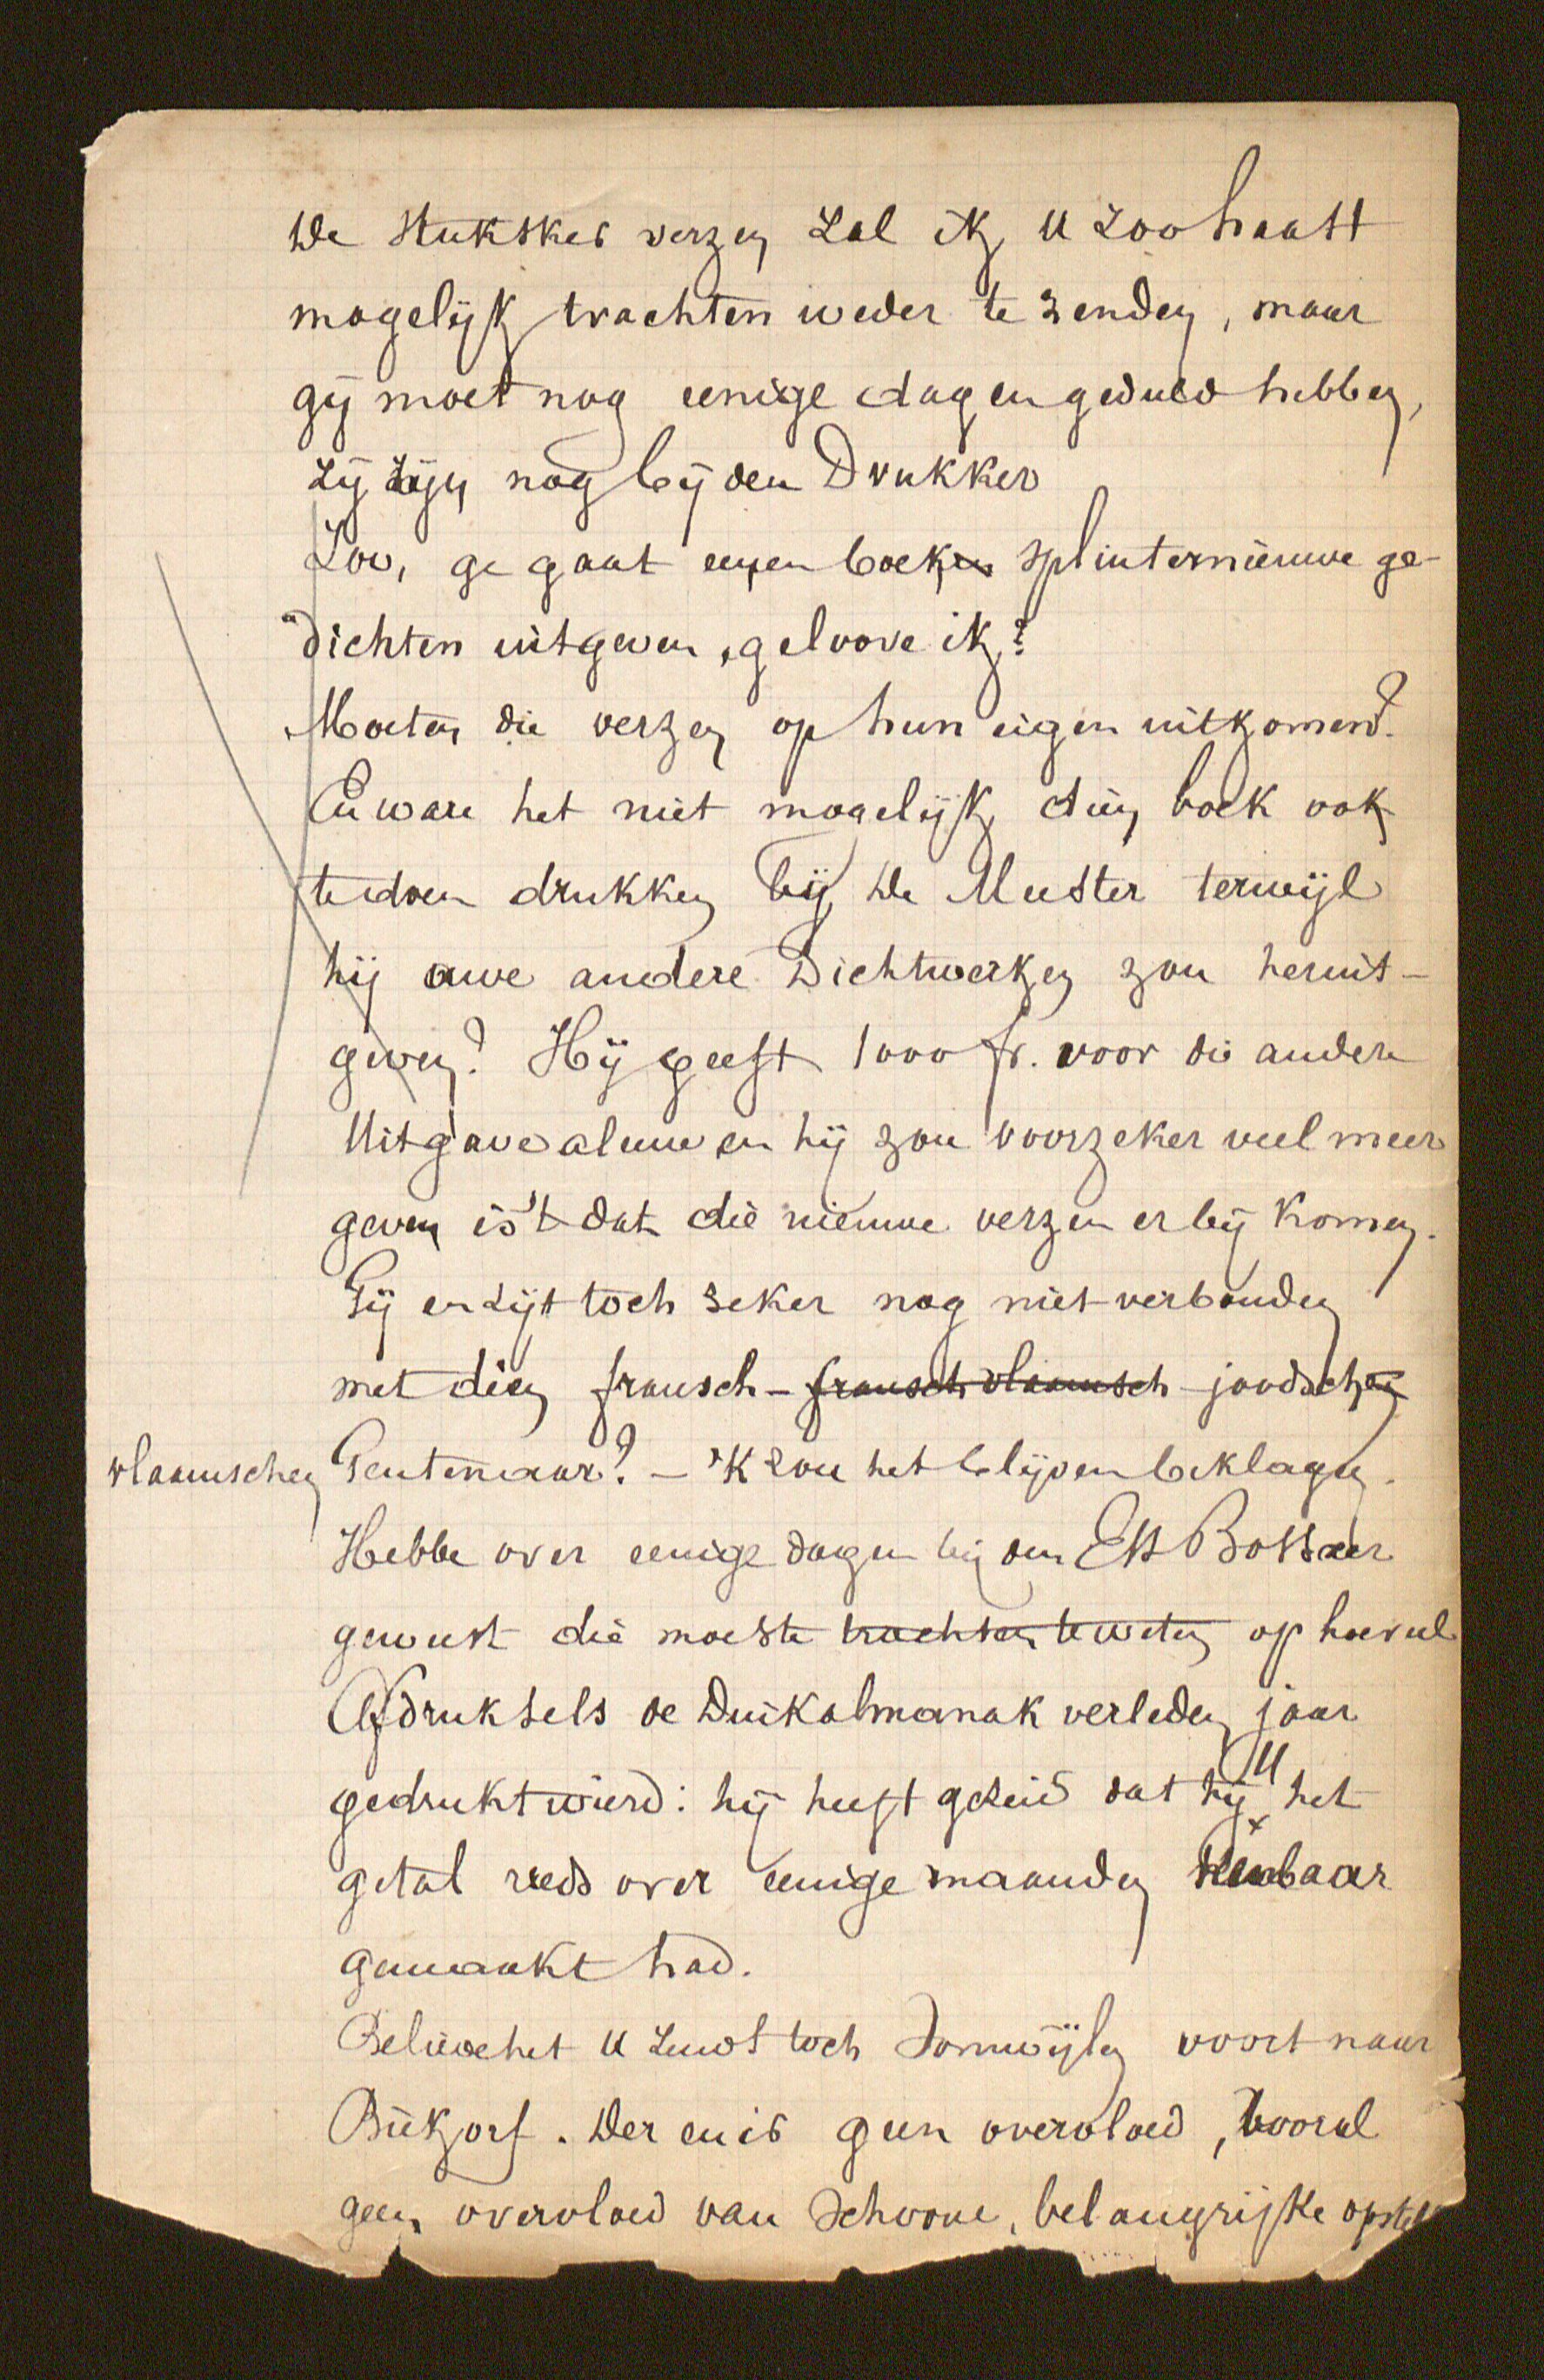 De stukskes verzen zal ik U zoohaast
mogelijk trachten weder te zenden, maar
gij moet nog eenige dagen geduld hebben,
zij zijn nog bij den Drukker
Zoo, ge gaat eenen boek splinternieuwe ge-
dichten uitgeven, geloove ik?
Moeten die verzen op hun eigen uitkomen?
En ware het niet mogelijk dien boek ook
te doen drukken bij De Meester terwijl
hij uwe andere Dichtwerken zou heruit-
geven? Hij geeft 1000 fr. voor die andere
Uitgave alleene en hij zou voorzeker veel meer
geven is't dat die nieuwe verzen er bij komen.
Gij en zijt toch zeker nog niet verbonden
met dien fransch-fransch vlaamsch-joodschen
vlaamschen Gentenaar? - 'K zou het blijven beklagen.
Hebbe over eenige dagen bij den EH Botsaer
geweest die moeste trachten te weten op hoeveel
Afdruksels de Duikalmanak verleden jaar
gedrukt wierd: hij heeft gezeid dat hij U het
getal reeds over eenige maanden kenbaar
gemaakt had.
Believe het U zendt toch somwijlen voort naar
Biekorf. Der en is geen overvloed, vooral
geen overvloed van schoone, belangrijke opstel